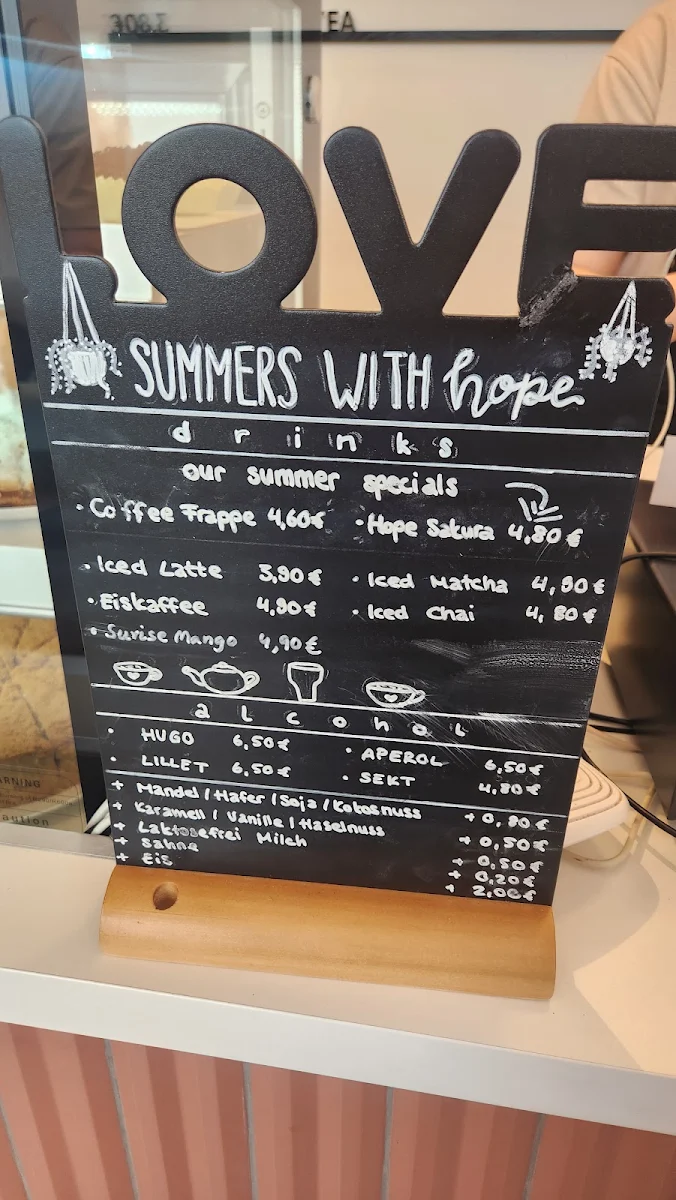 TEA
3,80€
LOVE
SUMMERS WITH hope
drinks
our summer specials
• Coffee Frappe 4,60€ • Hope Sakura 4,80€
• Iced Latte 3,90€ • Iced Matcha 4,90€
• Eiskaffee 4,90€ • Iced Chai 4,80€
• Surise Mango 4,90€
alcohol
• HUGO 6,50€ • APEROL 6,50€
• LILLET 6,50€ • SEKT 4,80€
+ Mandel / Hafer / Soja / Kokosnuss +0,80€
+ Karamell / Vanille / Haselnuss +0,50€
+ Laktosefrei Milch +0,50€
+ Sahne +0,20€
+ Eis + 2,00€